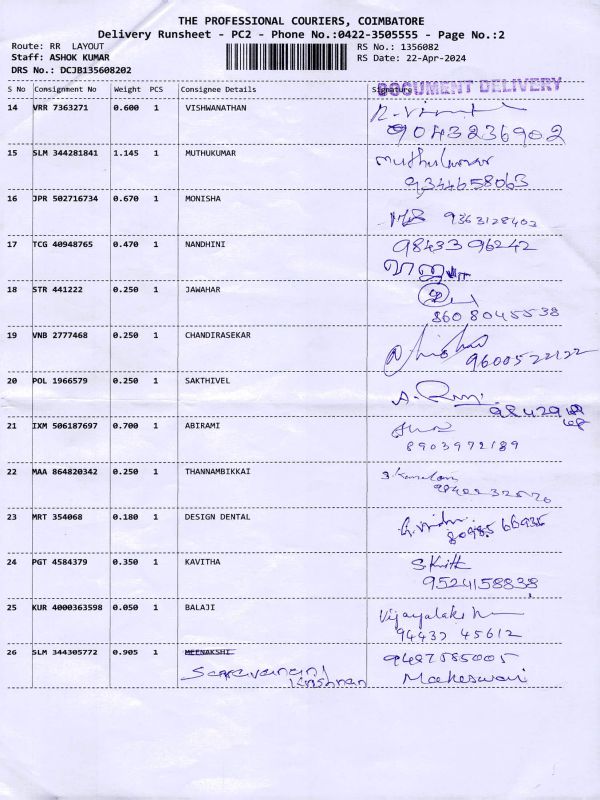 THE PROFESSIONAL COURIERS, COIMBATORE
Delivery Runsheet - PC2 - Phone No.:0422-3505555 - Page No.:2
Route: RR LAYOUT
RS No.: 1356082
Staff: ASHOK KUMAR
RS Date: 22-Apr-2024
DRS No.: DCJB135608202
DOCUMENT DELIVERY
S No Consignment No Weight PCS Consignee Details Signature
14 VRR 7363271 0.600 1 VISHWANATHAN
9043236902
15 SLM 344281841 1.145 1 MUTHUKUMAR Muthukumar
9344658063
16 JPR 502716734 0.670 1 MONISHA
9363128403
17 TCG 40948765 0.470 1 NANDHINI 98433 96242
18 STR 441222 0.250 1 JAWAHAR
860 8045538
19 VNB 2777468 0.250 1 CHANDIRASEKAR
9600522122
20 POL 1966579 0.250 1 SAKTHIVEL
21 IXM 506187697 0.700 1 ABIRAMI
8903972189
22 MAA 864820342 0.250 1 THANNAMBIKKAI
23 MRT 354068 0.180 1 DESIGN DENTAL
24 PGT 4584379 0.350 1 KAVITHA
9524158838
25 KUR 4000363598 0.050 1 BALAJI
94437 45612
26 SLM 344305772 0.905 1 MEENAKSHI 9487585005
Saravanan Krishnan Maheswari